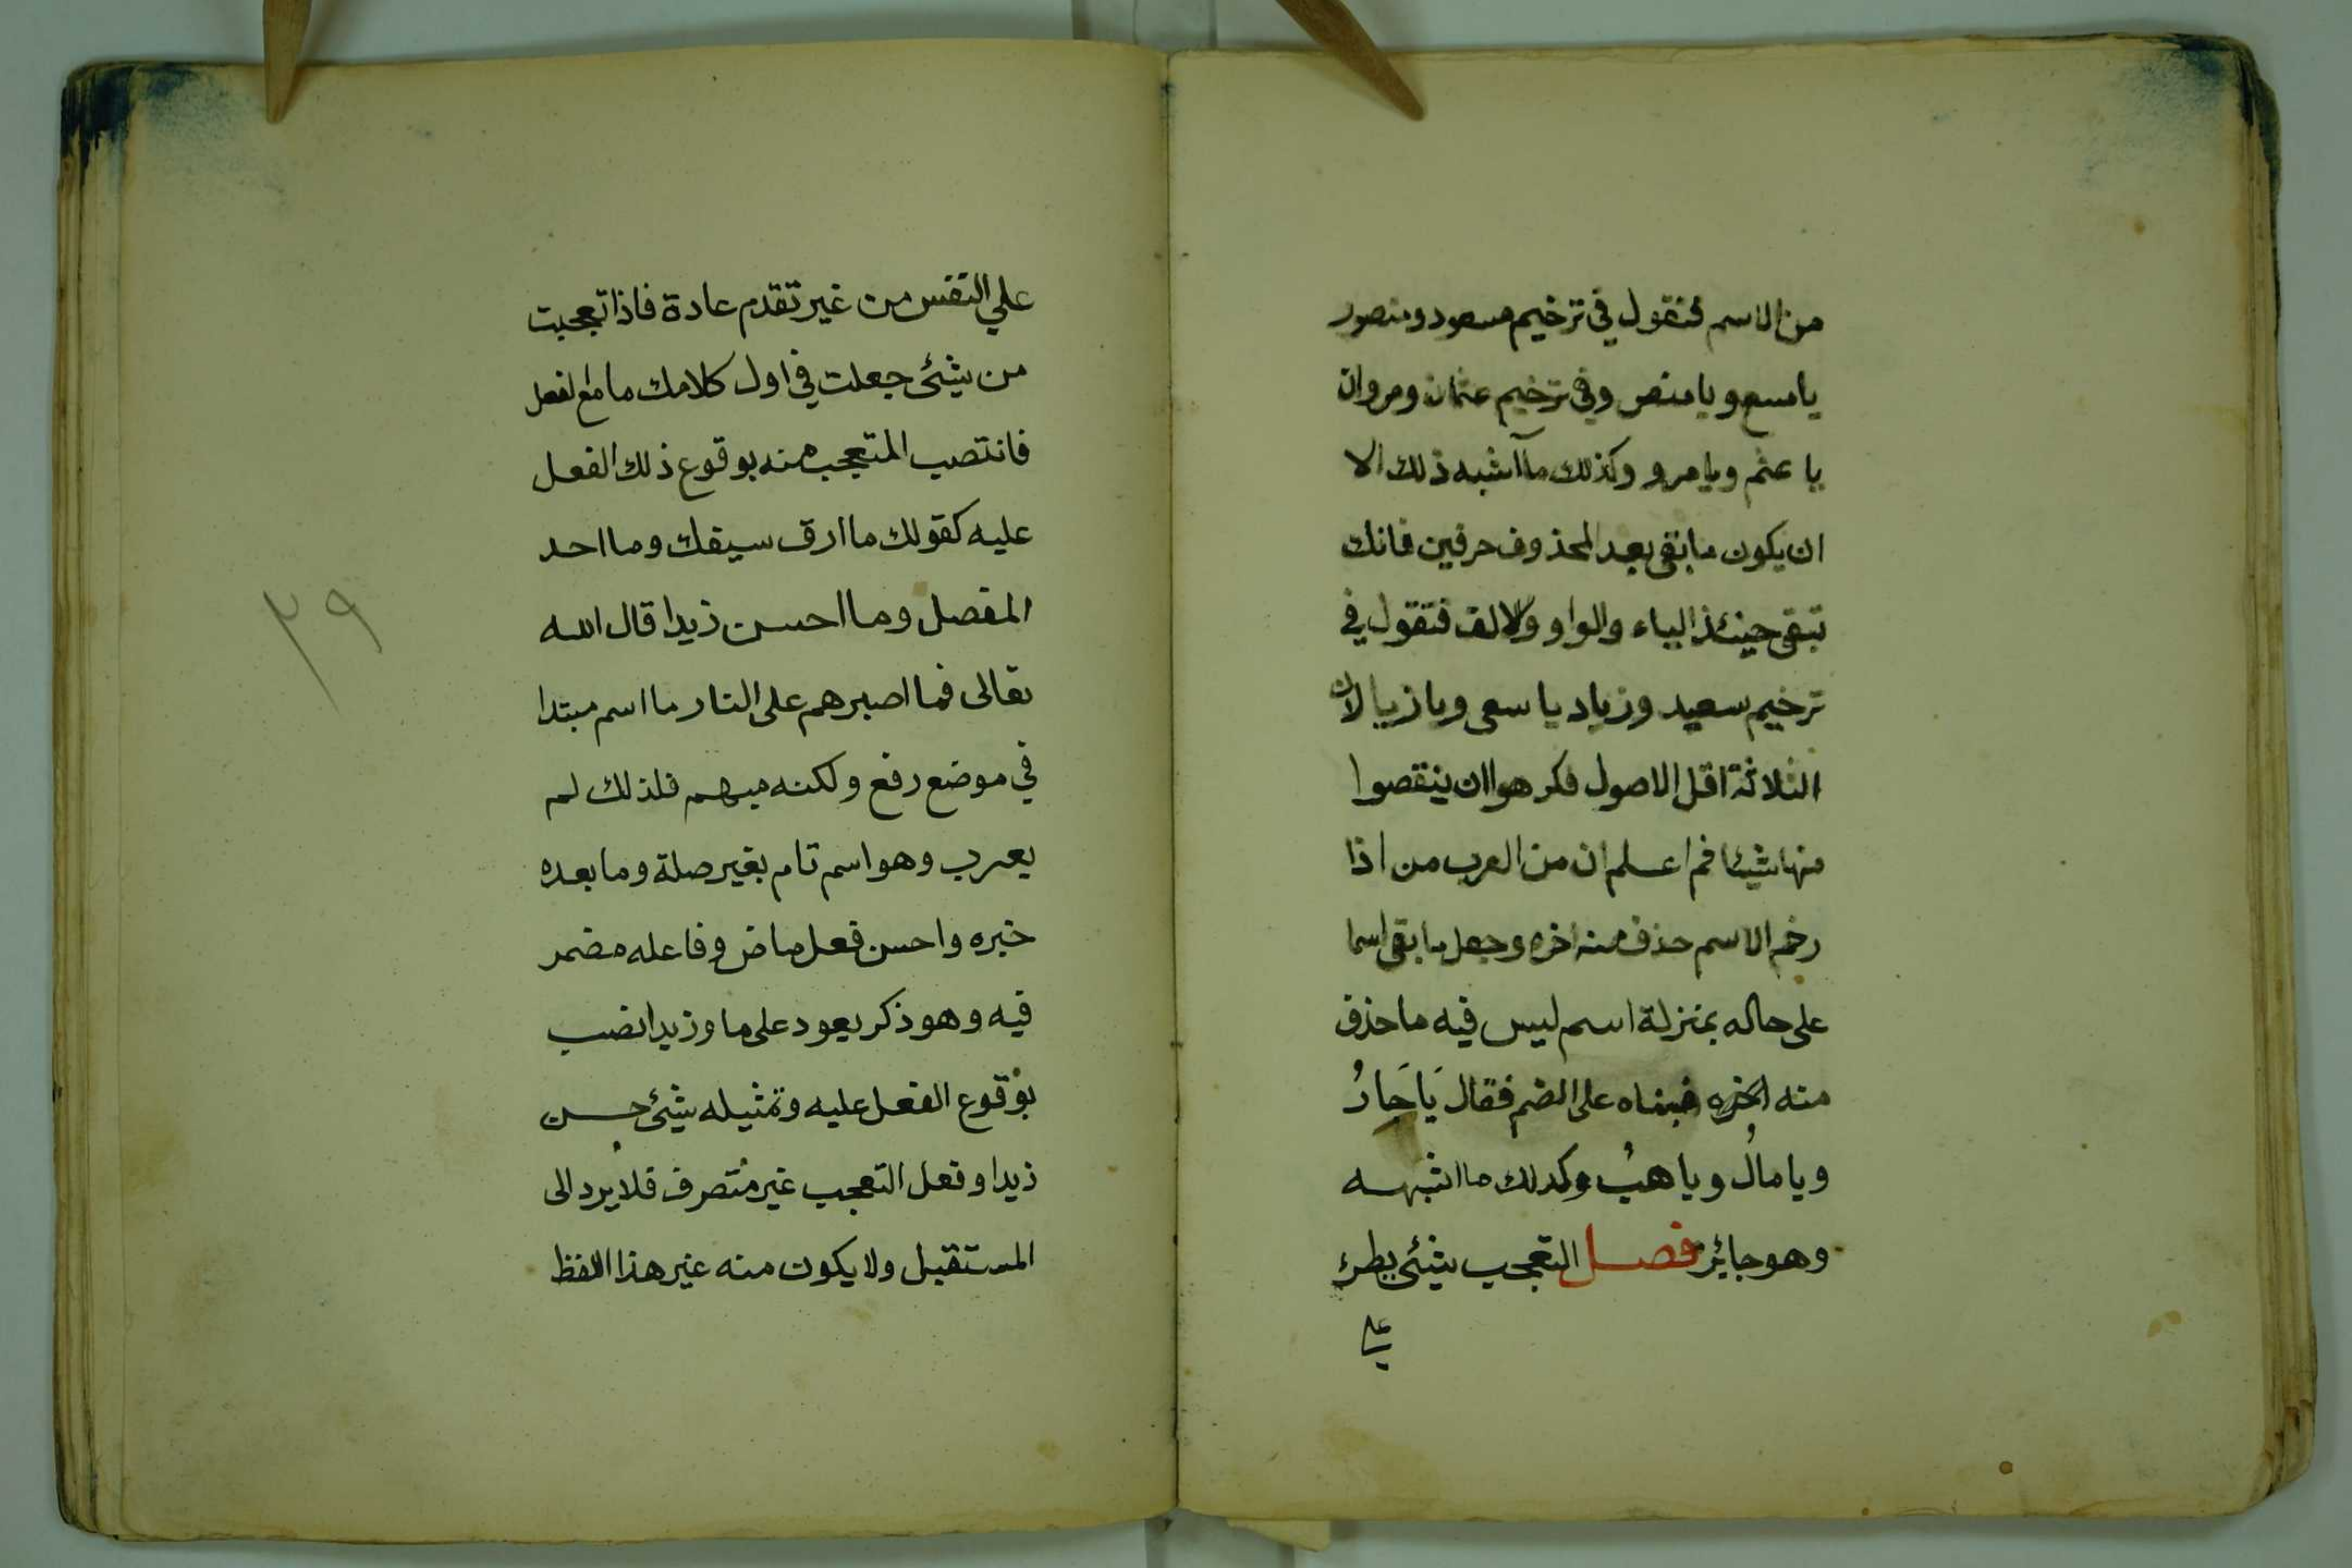 من الاسم فتقول في ترخيم مسعود ومنصور
يا مسع ويا منص وفي ترخيم عثمان ومروان
يا عثم ويا مرو وكذلك ما اشبه ذلك الا
ان يكون ما بقى بعد المحذوف حرفين فانك
تبقى حينئذ الياء والواو والالف فتقول في
ترخيم سعيد وزياد يا سعى ويا زيا لان
الثلاثة اقل الاصول فكرهوا ان ينقصوا
منها شيئا ثم اعلم ان من العرب من اذا
رخم الاسم حذف منه اخره وجعل ما بقى اسما
على حاله بمنزلة اسم ليس فيه ما حذف
منه اخره فبناه على الضم فقال يَا حَارُ
ويا مالُ ويا هبُ وكذلك ما اشبهه
وهو جائز فصل التعجب شيئ يطرء
علي
علي النفس من غير تقدم عادة فاذا تعجبت
من شيئ جعلت في اول كلامك ما مع لفعل
فانتصب المتعجب منه بوقوع ذلك الفعل
عليه كقولك ما ارق سيفك وما احد
المفصل وما احسن زيدا قال الله
تعالى فما اصبرهم على النار ما اسم مبتدا
في موضع رفع ولكنه مبهم فلذلك لم
يعرب وهو اسم تام بغير صلة وما بعده
خبره واحسن فعل ماض وفاعله مضمر
فيه وهو ذكر يعود على ما وزيدا نصب
بوقوع الفعل عليه وتمثيله شيئ حسن
زيدا وفعل التعجب غير متصرف فلا يرد الى
المستقبل ولا يكون منه غير هذا اللفظ
٣٩